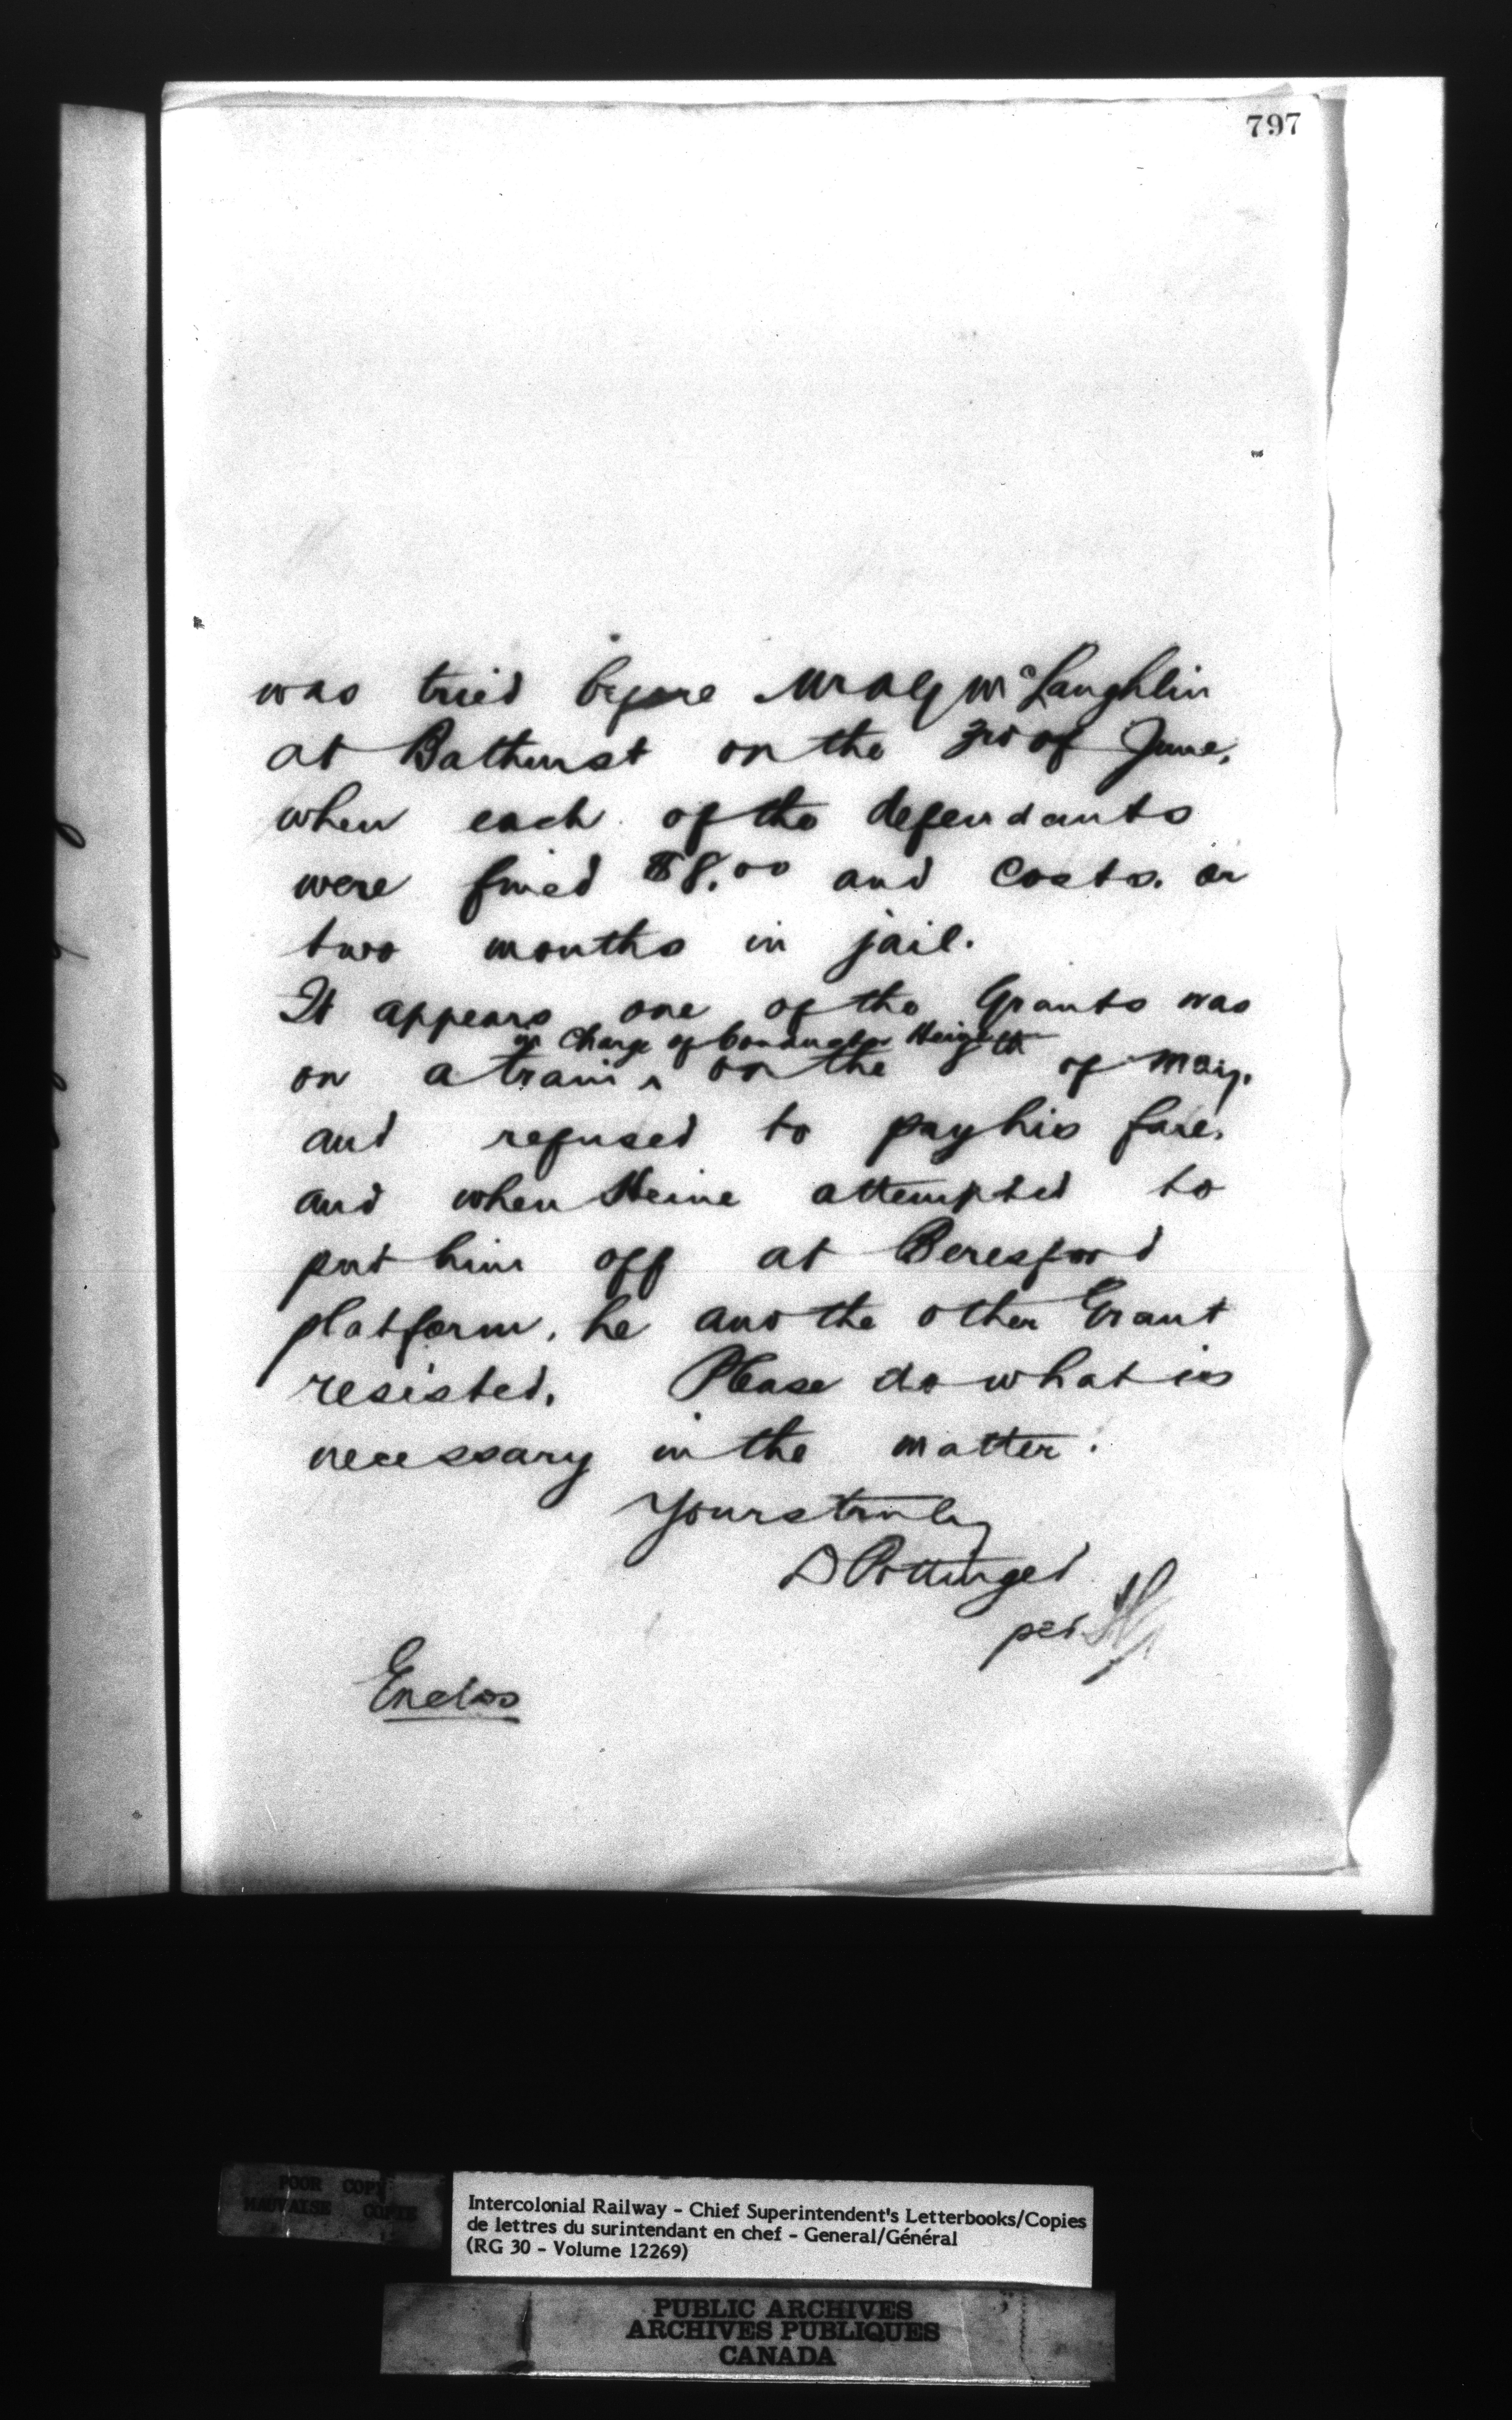 797
was tried before Mr Alex McLaughlin
at Bathurst on the 3rd of June,
when each of the defendants
were fined $8.00 and costs. or
two months in jail.
It appears one of the Grants was
in charge of Conductor Heine
on a train ^ on the 8th of May.
and refused to pay his fare,
and when Heine attempted to
put him off at Beresford
platform, he and the other Grant
resisted. Please do what is
necessary in the matter.
Yours truly
D Pottinger
per
Enclos
POOR COPY
MAUVAISE COPIE
Intercolonial Railway - Chief Superintendent's Letterbooks/Copies
de lettres du surintendant en chef - General/Général
(RG 30 - Volume 12269)
PUBLIC ARCHIVES
ARCHIVES PUBLIQUES
CANADA